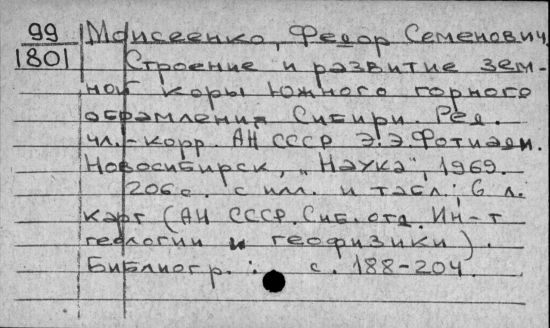 99 Моисеенко, Федор Семенович.
1801 Строение и развитие зем-
ной коры Южного горного
обрамления Сибири. Ред.
чл.-корр. АН СССР Э.Э.Фотиади.
Новосибирск, "Наука", 1969.
206с. с илл. и табл.; 6 л.
карт (АН СССР. Сиб. отд. Ин-т
геологии и геофизики).
Библиогр.: с. 188-204.